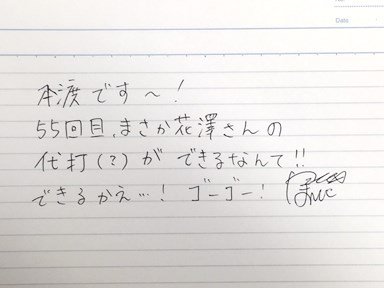 Date
本渡です～!
55回目、まさか花澤さんの
代打(?)ができるなんて!!
できるかえ…! ゴーゴー!